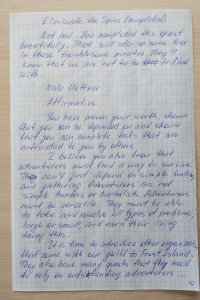 Eliminate the Spies (completed)
Not bad. You completed this quest
beautifully. That will stir up some fear
in those troublesome pirates. They'll
know that we are not to be trifled
with.
Nala Hettner
Affirmative
You have proven your worth, shown
that you can be depended on and shown
that you can complete tasks that are
entrusted to you by others.
I believe you also know that
adventurers must find a way to survive.
They can't just depend on simple hunting
and gathering. Adventurers are not
simple hunters or herbalists. Adventurers
must be versatile. They must be able
to take and resolve all types of problems,
large or small, and earn their living
doing this.
It is time to introduce other organizations
that came with our guild to Frost Island.
They also have many quests that they need
to rely on outstanding adventurers...